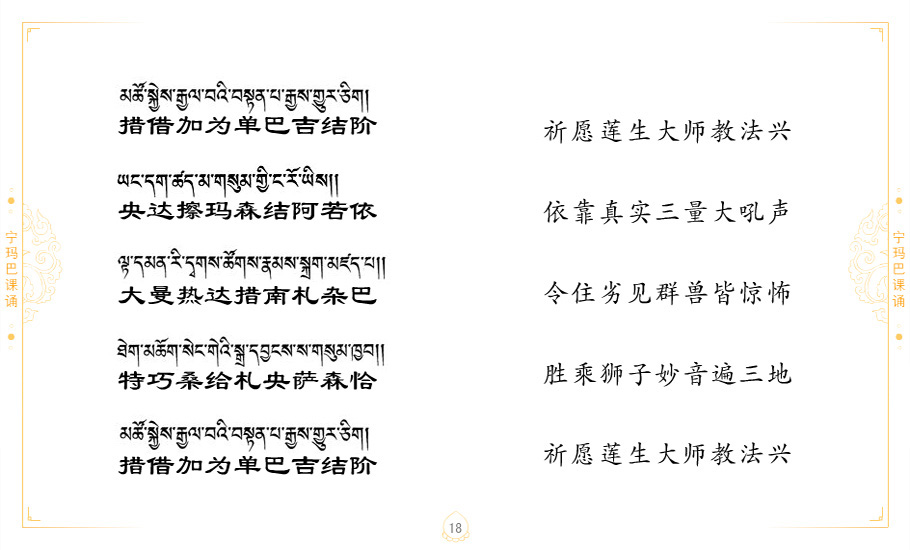 མཚོ་སྐྱེས་རྒྱལ་བའི་བསྟན་པ་རྒྱས་གྱུར་ཅིག།
措借加为单巴吉结阶
祈愿莲生大师教法兴
ཡང་དག་ཚད་མ་གསུམ་གྱི་ང་རོ་ཡིས།།
央达擦玛森结阿若依
依靠真实三量大吼声
ལྟ་དམན་རི་དྭགས་ཚོགས་རྣམས་སྐྲག་མཛད་པ།།
大曼热达措南札杂巴
令住劣见群兽皆惊怖
ཐེག་མཆོག་སེང་གེའི་སྒྲ་དབྱངས་ས་གསུམ་ཁྱབ།།
特巧桑给札央萨森恰
胜乘狮子妙音遍三地
མཚོ་སྐྱེས་རྒྱལ་བའི་བསྟན་པ་རྒྱས་གྱུར་ཅིག།
措借加为单巴吉结阶
祈愿莲生大师教法兴
宁玛巴课诵
宁玛巴课诵
18